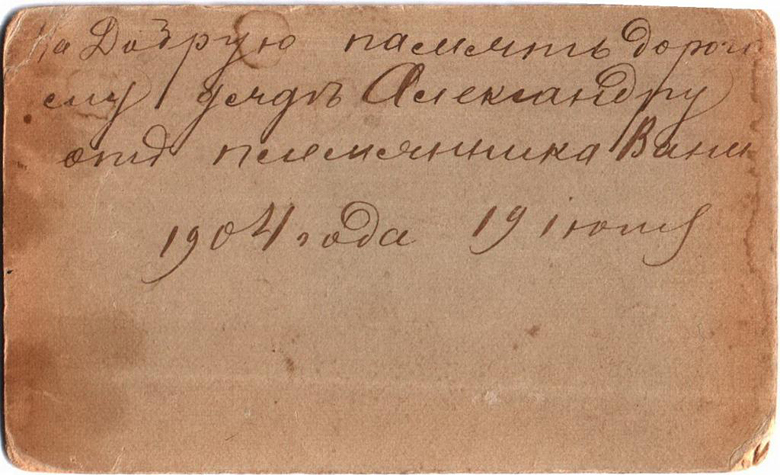 На Добрую память дорог
ому дядѣ Александру
отъ племянника Вани
1904 года 19 июля